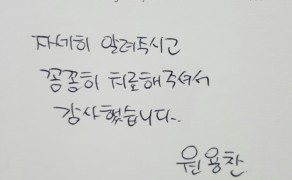 자세히 알려주시고
꼼꼼히 치료해주셔서
감사했습니다.
원용찬